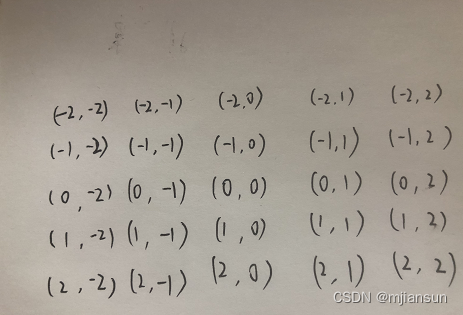 (-2, -2) (-2, -1) (-2.0) (-2.1) (-2, 2)
(-1, -2) (-1, -1) (-1, 0) (-1,1) (-1, 2)
(0, -2) (0, -1) (0, 0) (0, 1) (0, 2)
(1, -2) (1, -1) (1, 0) (1, 1) (1, 2)
(2, -2) (2, -1) (2, 0) (2, 1) (2, 2)
CSDN @mjiansun